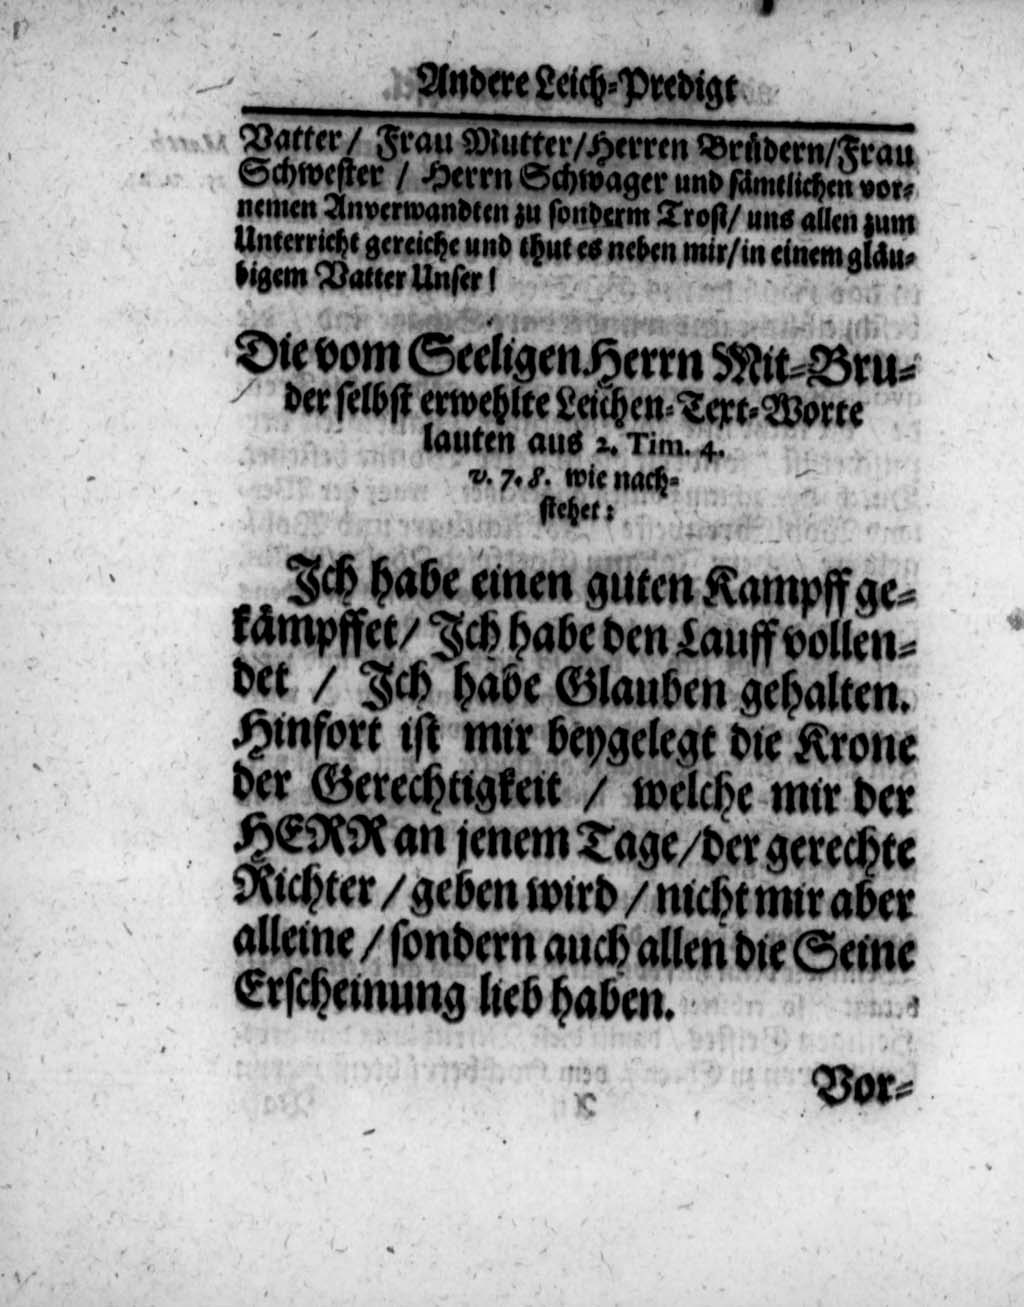 Andere Leich-Predigt
Vatter/ Frau Mutter/Herren Brüdern/Frau
Schwester / Herrn Schwager und sämtlichen vor-
nemen Anverwandten zu sonderm Trost/ uns allen zum
Unterricht gereiche und thut es neben mir/in einem gläu-
bigem Vatter Unser!
Die vom Seeligen Herrn Mit-Bru-
der selbst erwehlte Leichen-Text-Worte
lauten aus 2. Tim. 4.
v. 7. 8. wie nach-
stehet:
Jch habe einen guten Kampff ge-
kämpffet/ Jch habe den Lauff vollen-
det / Jch habe Glauben gehalten.
Hinfort ist mir beygelegt die Krone
der Gerechtigkeit / welche mir der
HERR an jenem Tage/der gerechte
Richter /geben wird / nicht mir aber
alleine / sondern auch allen die Seine
Erscheinung lieb haben.
Vor-